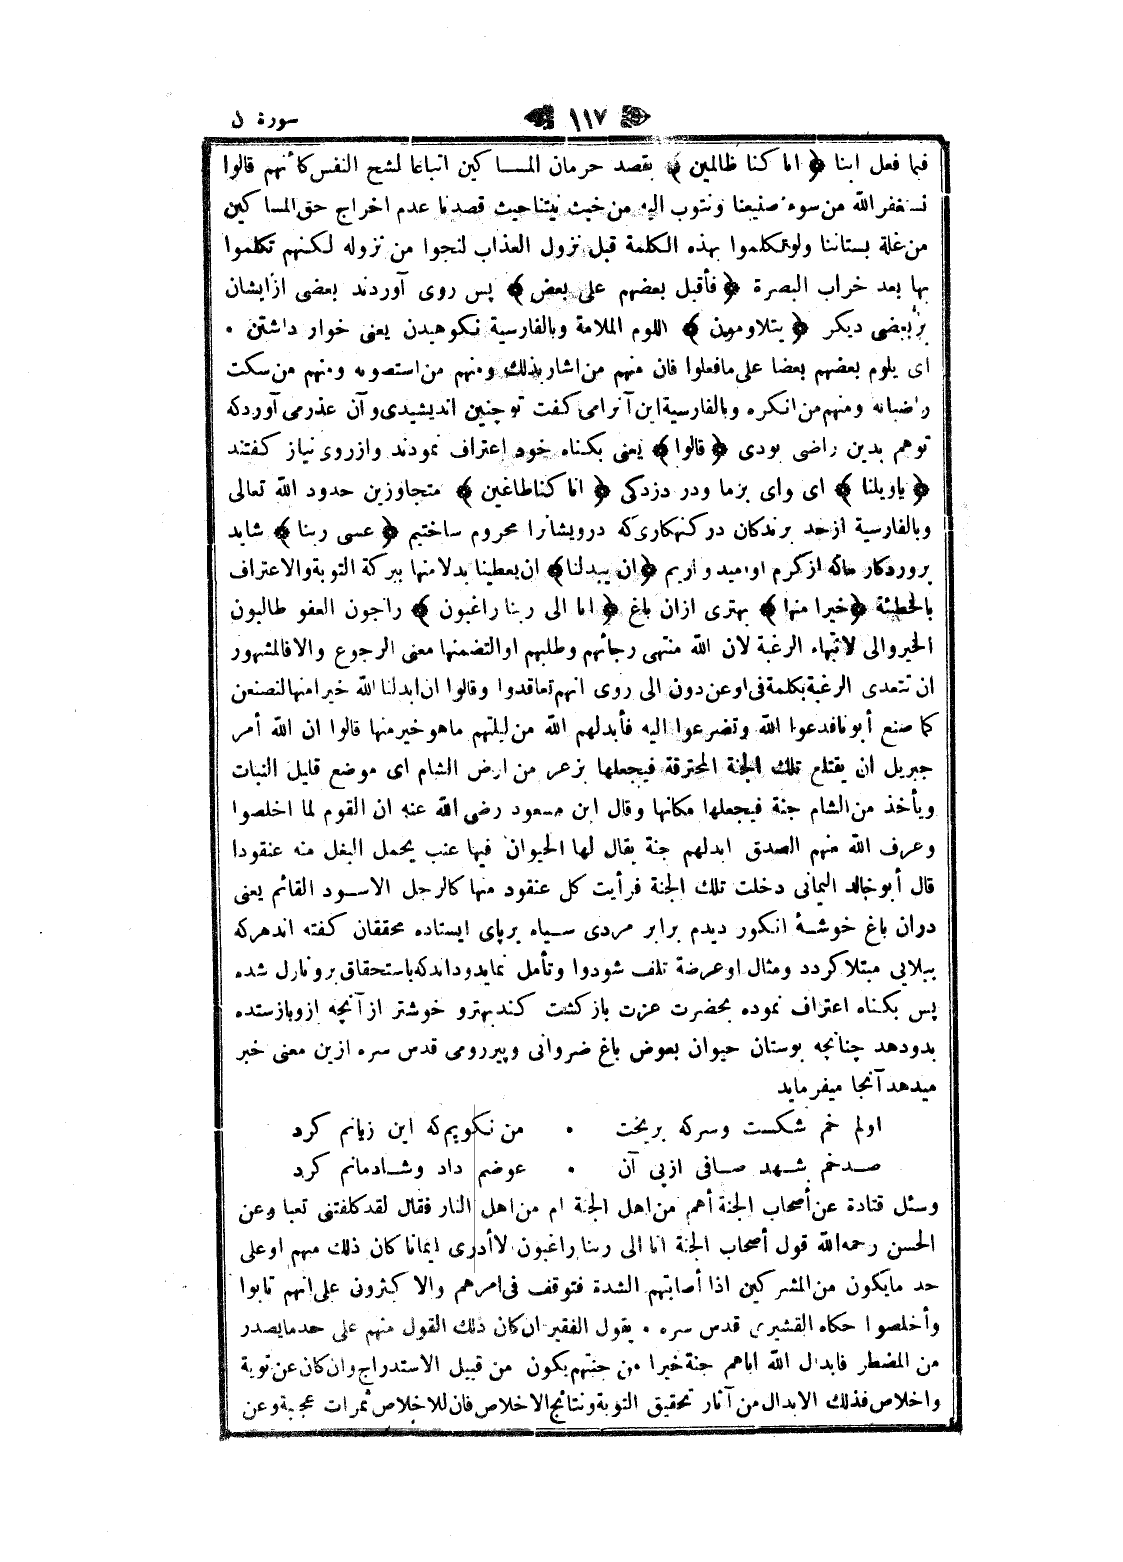 سورة ن
١١٧
فيما فعل ابنا ﴿ انا كنا ظالمين ﴾ بقصد حرمان المساكين اتباعا لشح النفس كأنهم قالوا
نستغفر الله من سوء صنيعنا ونتوب اليه من خبث نيتنا حيث قصدنا عدم اخراج حق المساكين
من غلة بستاننا ولو تكلموا بهذه الكلمة قبل نزول العذاب لنجوا من نزوله لكنهم تكلموا
بها بعد خراب البصرة ﴿ فأقبل بعضهم على بعض ﴾ پس روى آوردند بعضى ازايشان
بر بعضى ديكر ﴿ يتلاومون ﴾ اللوم الملامة وبالفارسية نكوهيدن يعنى خوار داشتن •
اى يلوم بعضهم بعضا على مافعلوا فان منهم من اشار بذلك ومنهم من استصوبه ومنهم من سكت
راضيابه ومنهم من انكره وبالفارسية اين آنرا مى كفت توچنين انديشيدى وآن عذر مى آورد كه
توهم بدين راضى بودى ﴿ قالوا ﴾ يعنى بكناه خود اعتراف نمودند وازروى نياز كفتند
﴿ ياويلنا ﴾ اى واى برما ودر دزدكى ﴿ انا كنا طاغين ﴾ متجاوزين حدود الله تعالى
وبالفارسية ازحد برندكان در كنهكارى كه درويشانرا محروم ساختيم ﴿ عسى ربنا ﴾ شايد
پروردكار ماكه ازكرم اواميد واريم ﴿ ان يبدلنا ﴾ ان يعطينا بدلا منها ببركة التوبة والاعتراف
بالخطيئة ﴿ خيرا منها ﴾ بهترى ازان باغ ﴿ انا الى ربنا راغبون ﴾ راجون العفو طالبون
الخير والى لانتهاء الرغبة لان الله منتهى رجائهم وطلبهم اولتضمنها معنى الرجوع والا فالمشهور
ان تتعدى الرغبة بكلمة فى اوعن دون الى روى انهم تعاقدوا وقالوا ان ابدلنا الله خيرا منها لنصنعن
كما صنع أبونا فدعوا الله وتضرعوا اليه فأبدلهم الله من ليلتهم ماهو خير منها قالوا ان الله أمر
جبريل ان يقتلع تلك الجنة المحترقة فيجعلها بزعر من ارض الشام اى موضع قليل النبات
ويأخذ من الشام جنة فيجعلها مكانها وقال ابن مسعود رضى الله عنه ان القوم لما اخلصوا
وعرف الله منهم الصدق ابدلهم جنة يقال لها الحيوان فيها عنب يحمل البغل منه عنقودا
قال أبو خالد اليمانى دخلت تلك الجنة فرأيت كل عنقود منها كالرجل الاسود القائم يعنى
دران باغ خوشۀ انكور ديدم برابر مردى سياه برپاى ايستاده محققان كفته اند هركه
ببلايى مبتلا كردد ومثال اوعرضۀ تلف شود واو تأمل نمايد وداند كه باستحقاق برو نازل شده
پس بكناه اعتراف نموده بحضرت عزت بازكشت كند بهتر و خوشتر ازآنچه ازو بازستده
بدو دهد چنانچه بوستان حيوان بعوض باغ ضروانى وپير رومى قدس سره ازين معنى خبر
ميدهد آنجا ميفرمايد
اولم خم شكست وسركه بريخت • من نكويم كه اين زيانم كرد
صد خم شهد صافى ازپى آن • عوضم داد وشادمانم كرد
وسئل قتادة عن أصحاب الجنة أهم من اهل الجنة ام من اهل النار فقال لقد كلفتنى تعبا وعن
الحسن رحمه الله قول أصحاب الجنة انا الى ربنا راغبون لاأدرى ايمانا كان ذلك منهم اوعلى
حد مايكون من المشركين اذا أصابتهم الشدة فتوقف فى امرهم والاكثرون على انهم تابوا
وأخلصوا حكاه القشيرى قدس سره • يقول الفقير ان كان ذلك القول منهم على حد مايصدر
من المضطر فابدال الله اياهم جنة خيرا من جنتهم يكون من قبيل الاستدراج وان كان عن توبة
واخلاص فذلك الابدال من آثار تحقيق التوبة ونتائج الاخلاص فان للاخلاص ثمرات عجيبة وعن